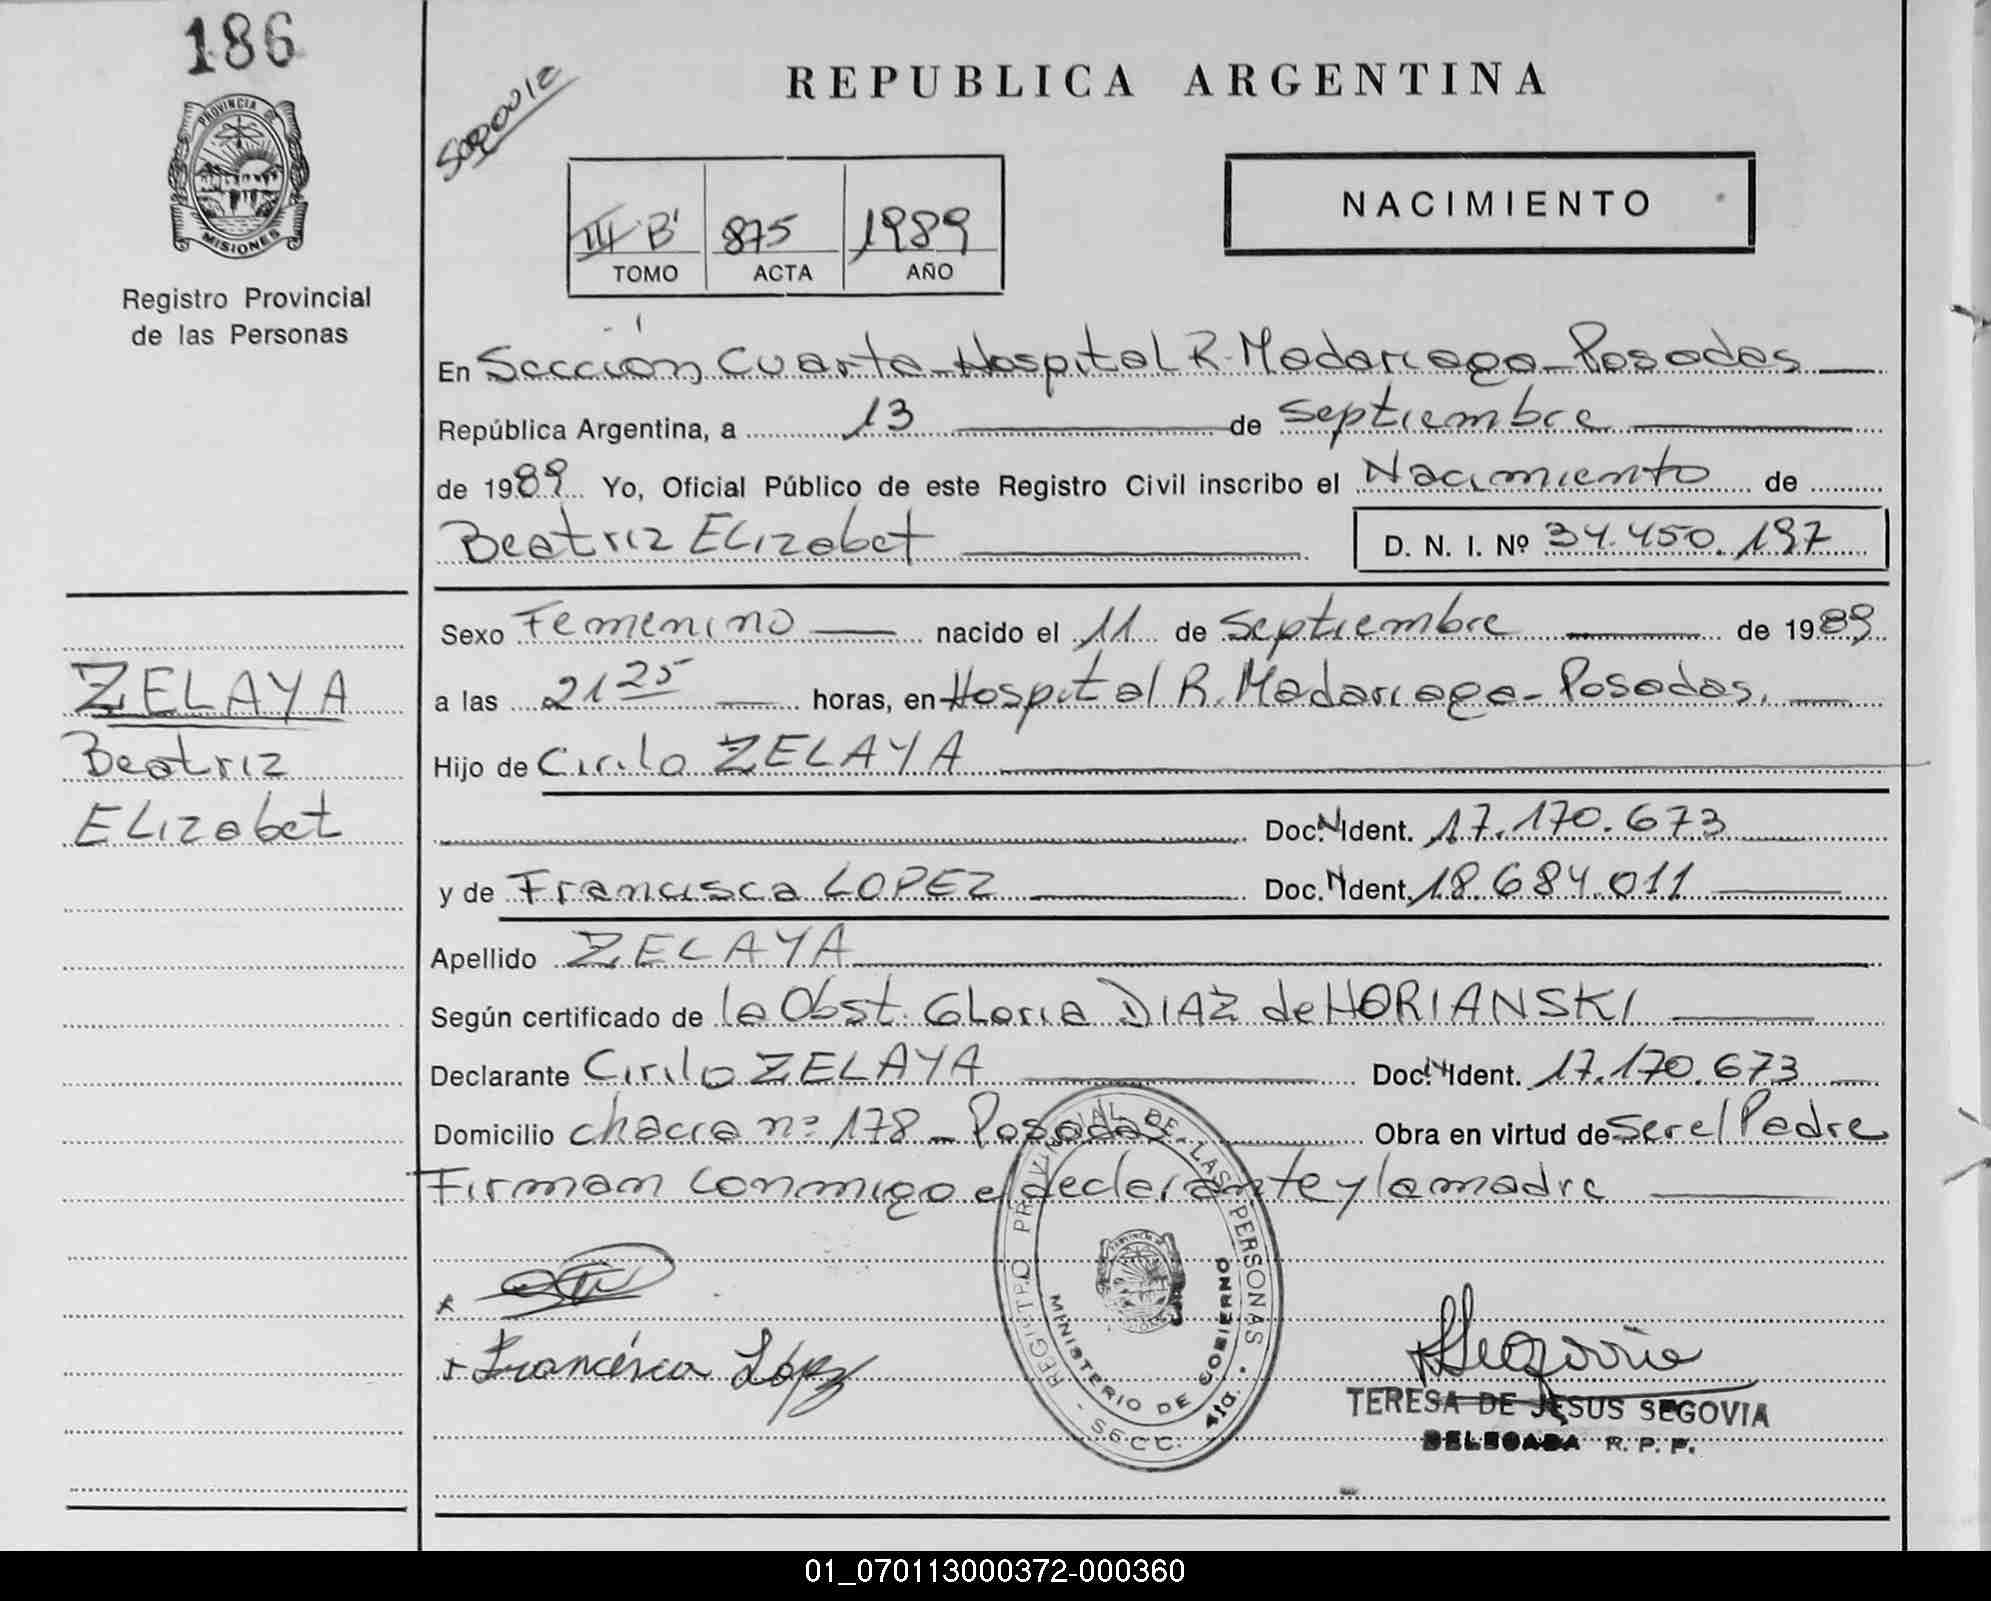 186
PROVINCIA DE
MISIONES
Registro Provincial
de las Personas
ZELAYA
Beatriz
Elizabet
REPUBLICA ARGENTINA
III B' 875 1989
TOMO ACTA AÑO
NACIMIENTO
En Sección Cuarta-Hospital R. Madariaga-Posadas
República Argentina, a 13 de septiembre
de 1989 Yo, Oficial Público de este Registro Civil inscribo el Nacimiento de
Beatriz Elizabet D. N. I. Nº 34.450.197
Sexo Femenino nacido el 11 de septiembre de 1989
a las 21 25 horas, en Hospital R. Madariaga-Posadas.
Hijo de Cirilo ZELAYA
Doc. N Ident. 17.170.673
y de Francisca LOPEZ Doc. N Ident. 18.684.011
Apellido ZELAYA
Según certificado de la Obst. Gloria DIAZ de HORIANSKI
Declarante Cirilo ZELAYA Doc. N Ident. 17.170.673
Domicilio chacra nº 178 - Posadas Obra en virtud de ser el Padre
Firman conmigo el declarante y la madre
Francisca López
REGISTRO PROVINCIAL DE LAS PERSONAS
MINISTERIO DE GOBIERNO
SECC. 4ta.
Segovia
TERESA DE JESUS SEGOVIA
DELEGADA R. P. P.
01_070113000372-000360